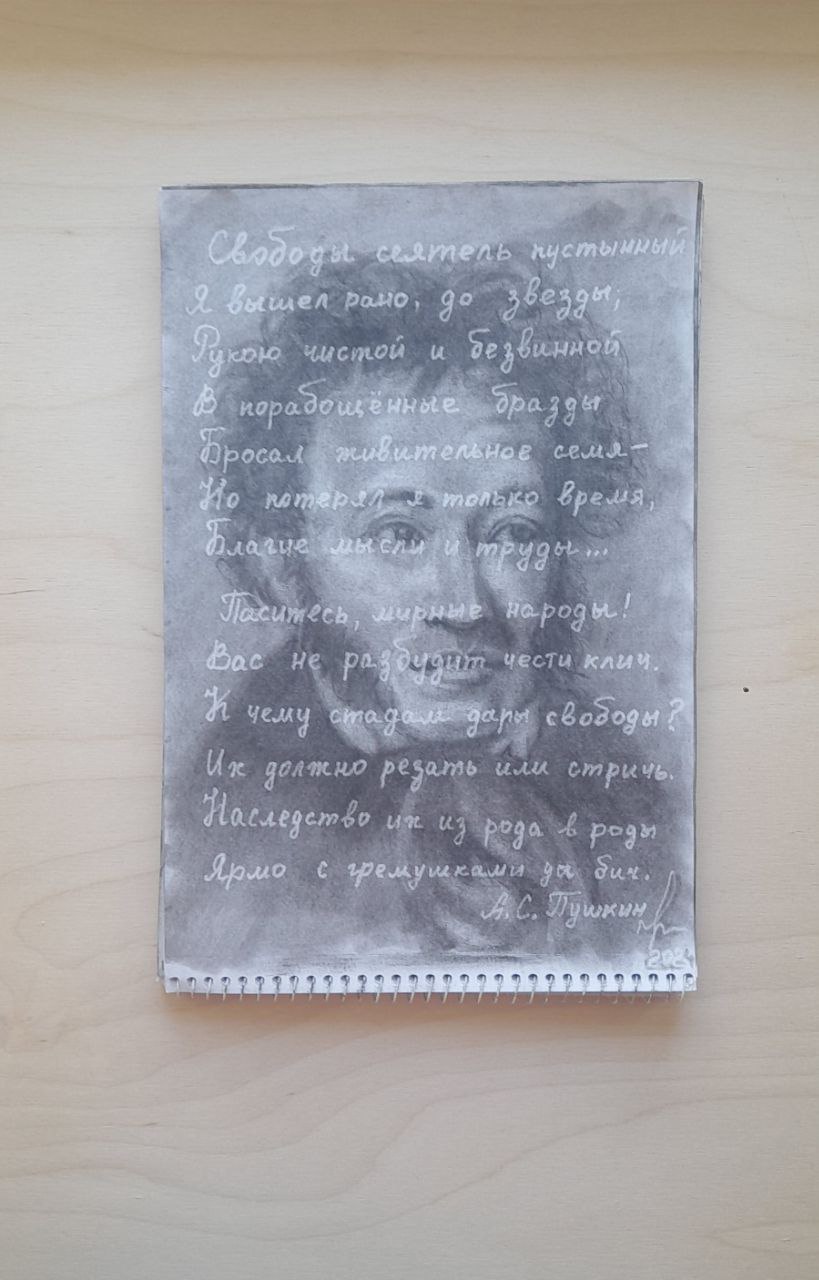 Свободы сеятель пустынный
Я вышел рано, до звезды;
Рукою чистой и безвинной
В порабощённые бразды
Бросал живительное семя—
Но потерял я только время,
Благие мысли и труды...
Паситесь, мирные народы!
Вас не разбудит чести клич.
К чему стадам дары свободы?
Их должно резать или стричь.
Наследство их из рода в роды
Ярмо с гремушками да бич.
А.С. Пушкин
2024